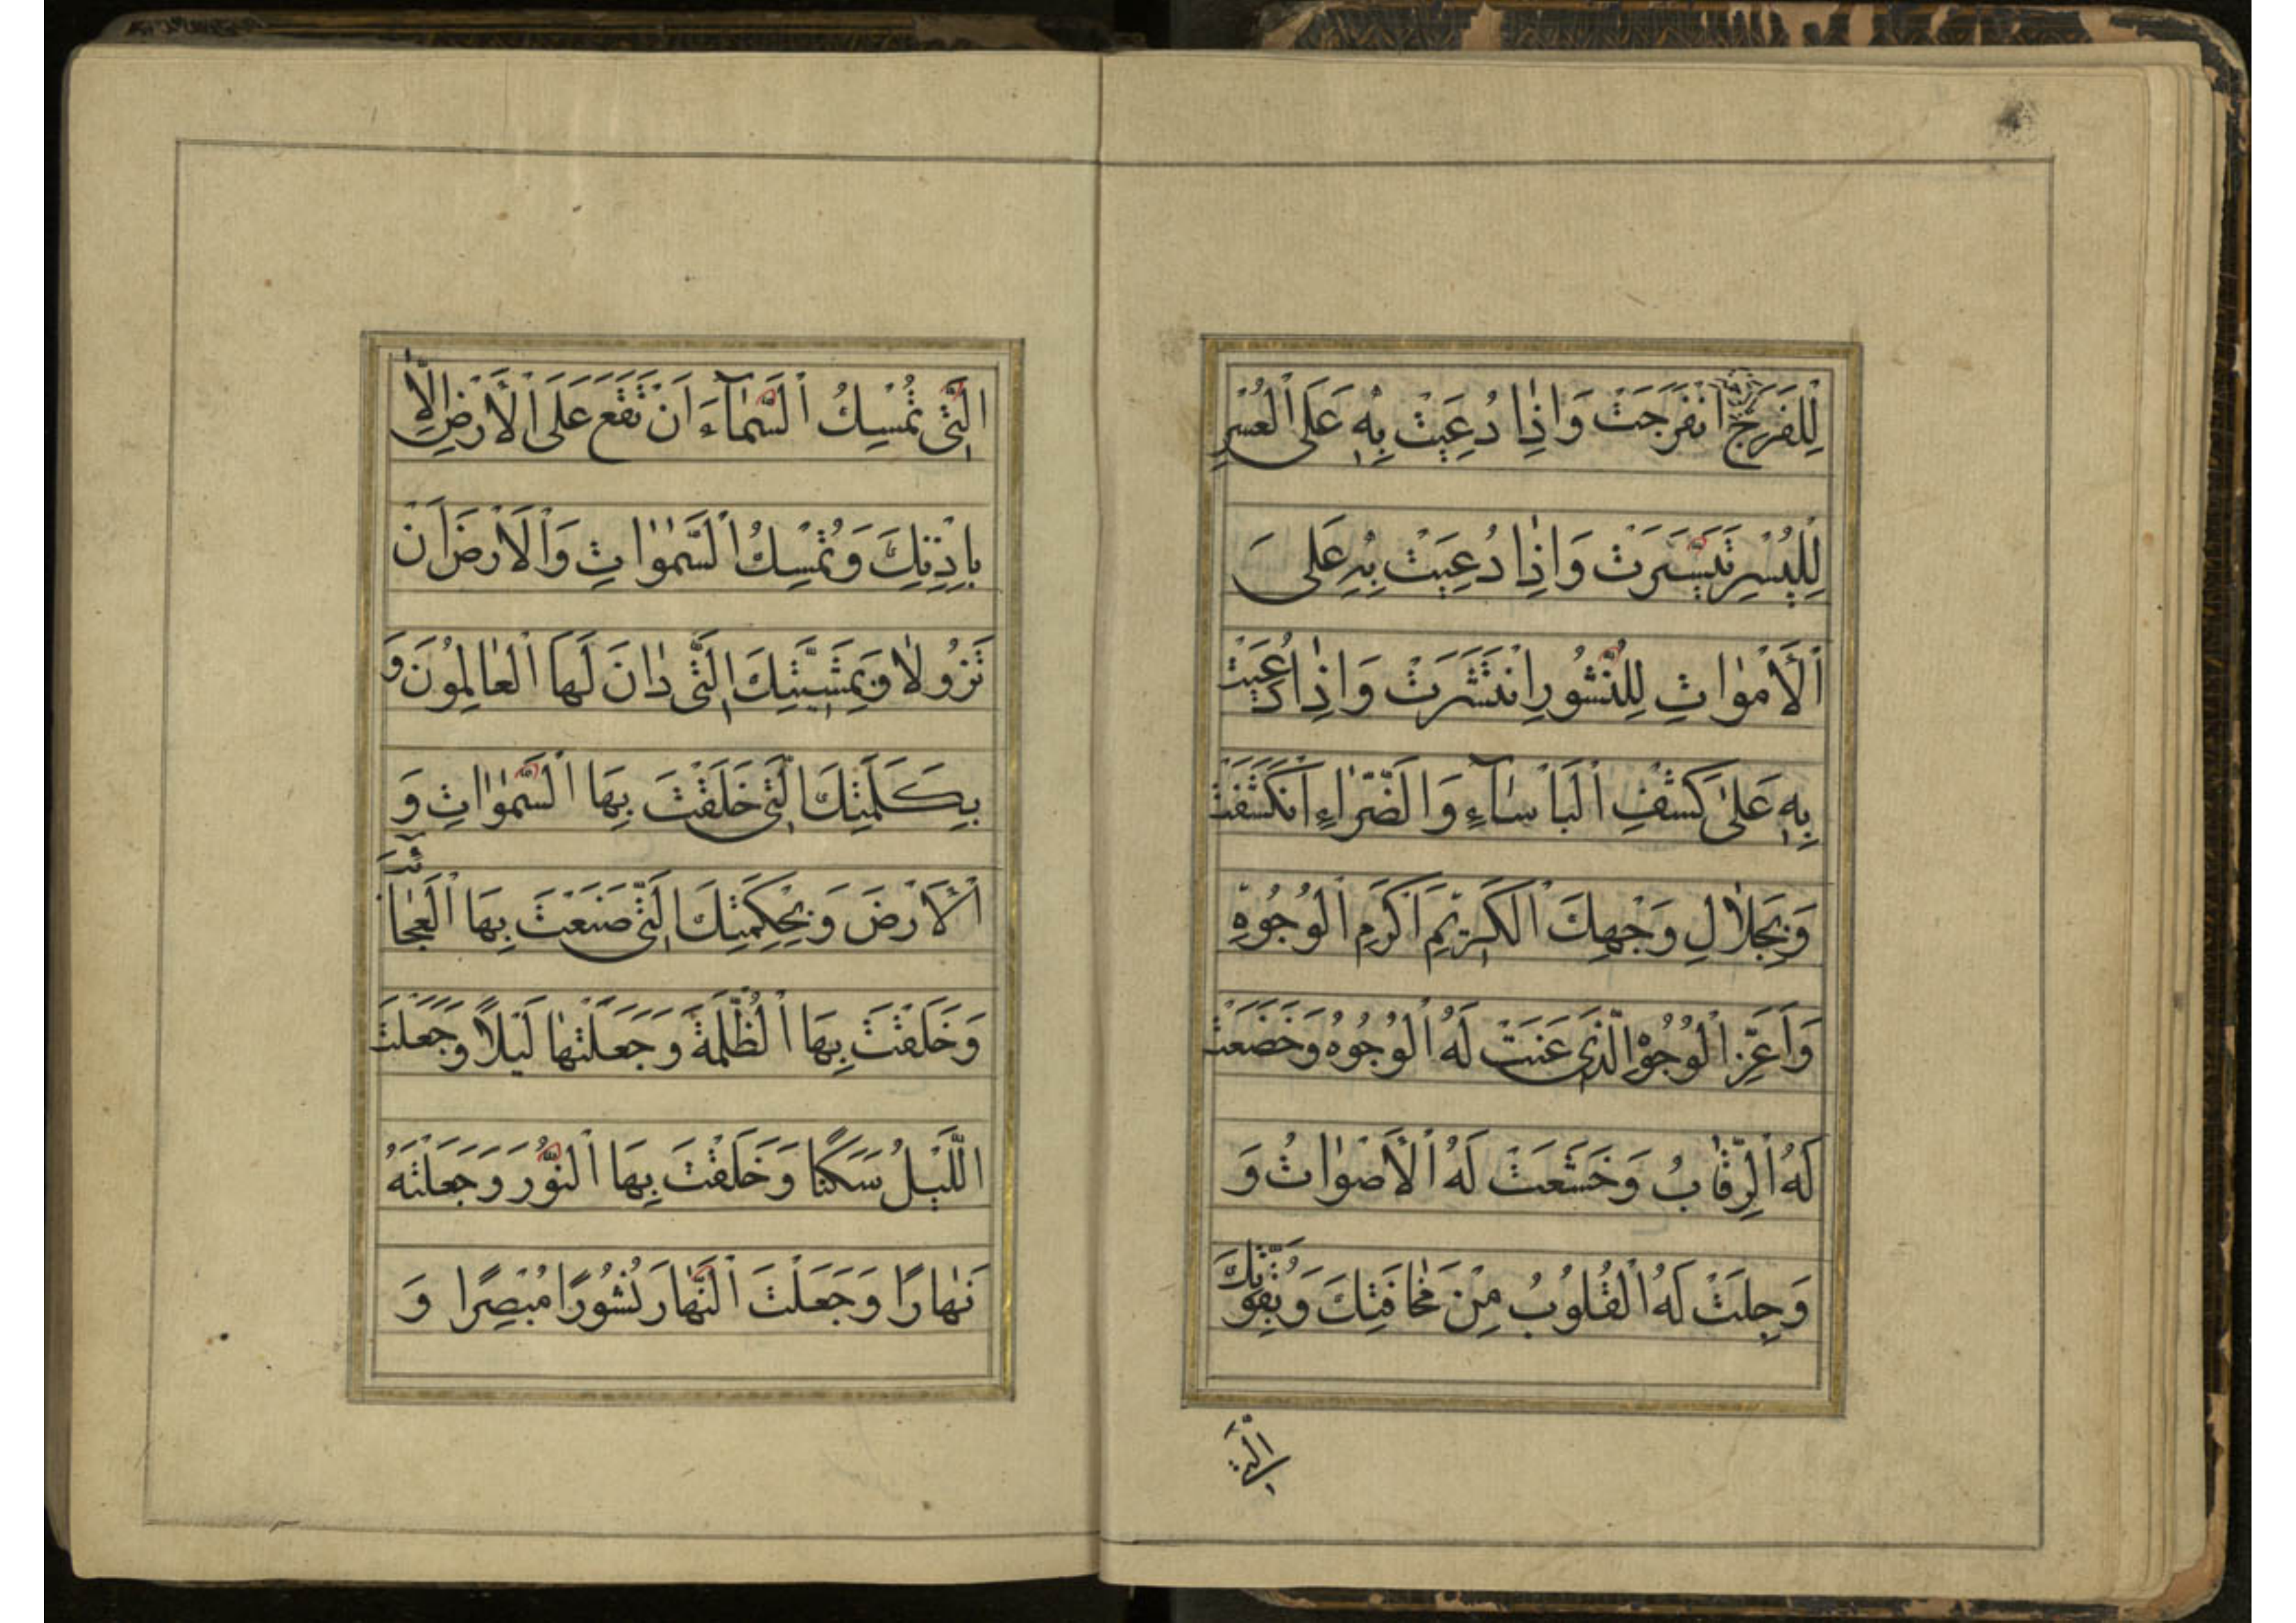 لِلْفَرَجِ انْفَرَجَتْ وَاِذٰا دُعٖيتَ بِهٖ عَلَى الْعُسْرِ
لِلْيُسْرِ تَيَسَّرَتْ وَاِذٰا دُعٖيتَ بِهِ عَلَى
الْأَمْوٰاتِ لِلنُّشُورِ انْتَشَرَتْ وَاِذٰا دُعٖيتَ
بِهٖ عَلىٰ كَشْفِ الْبَأْسٰآءِ وَالضَّرّٰاءِ انْكَشَفَتْ
وَبِجَلٰالِ وَجْهِكَ الْكَرٖيمِ اَكْرَمِ الْوُجُوهِ
وَاَعَزِّ الْوُجُوهِ الَّذٖى عَنَتْ لَهُ الْوُجُوهُ وَخَضَعَتْ
لَهُ الرِّقٰابُ وَخَشَعَتْ لَهُ الْأَصْوٰاتُ وَ
وَجِلَتْ لَهُ الْقُلُوبُ مِنْ مَخٰافَتِكَ وَبِقُوَّتِكَ
الَّتٖى
الَّتٖى تُمْسِكُ السَّمٰآءَ اَنْ تَقَعَ عَلَى الْأَرْضِ اِلّٰا
بِاِذْنِكَ وَتُمْسِكُ السَّمٰوٰاتِ وَالْأَرْضَ اَنْ
تَزُولٰا وَبِمَشِيَّتِكَ الَّتٖى دٰانَ لَهَا الْعٰالَمُونَ وَ
بِكَلِمَتِكَ الَّتٖى خَلَقْتَ بِهَا السَّمٰوٰاتِ وَ
الْأَرْضَ وَبِحِكْمَتِكَ الَّتٖى صَنَعْتَ بِهَا الْعَجٰآئِبَ
وَخَلَقْتَ بِهَا الظُّلْمَةَ وَجَعَلْتَهٰا لَيْلًا وَجَعَلْتَ
اللَّيْلَ سَكَنًا وَخَلَقْتَ بِهَا النُّورَ وَجَعَلْتَهُ
نَهٰارًا وَجَعَلْتَ النَّهٰارَ نُشُورًا مُبْصِرًا وَ